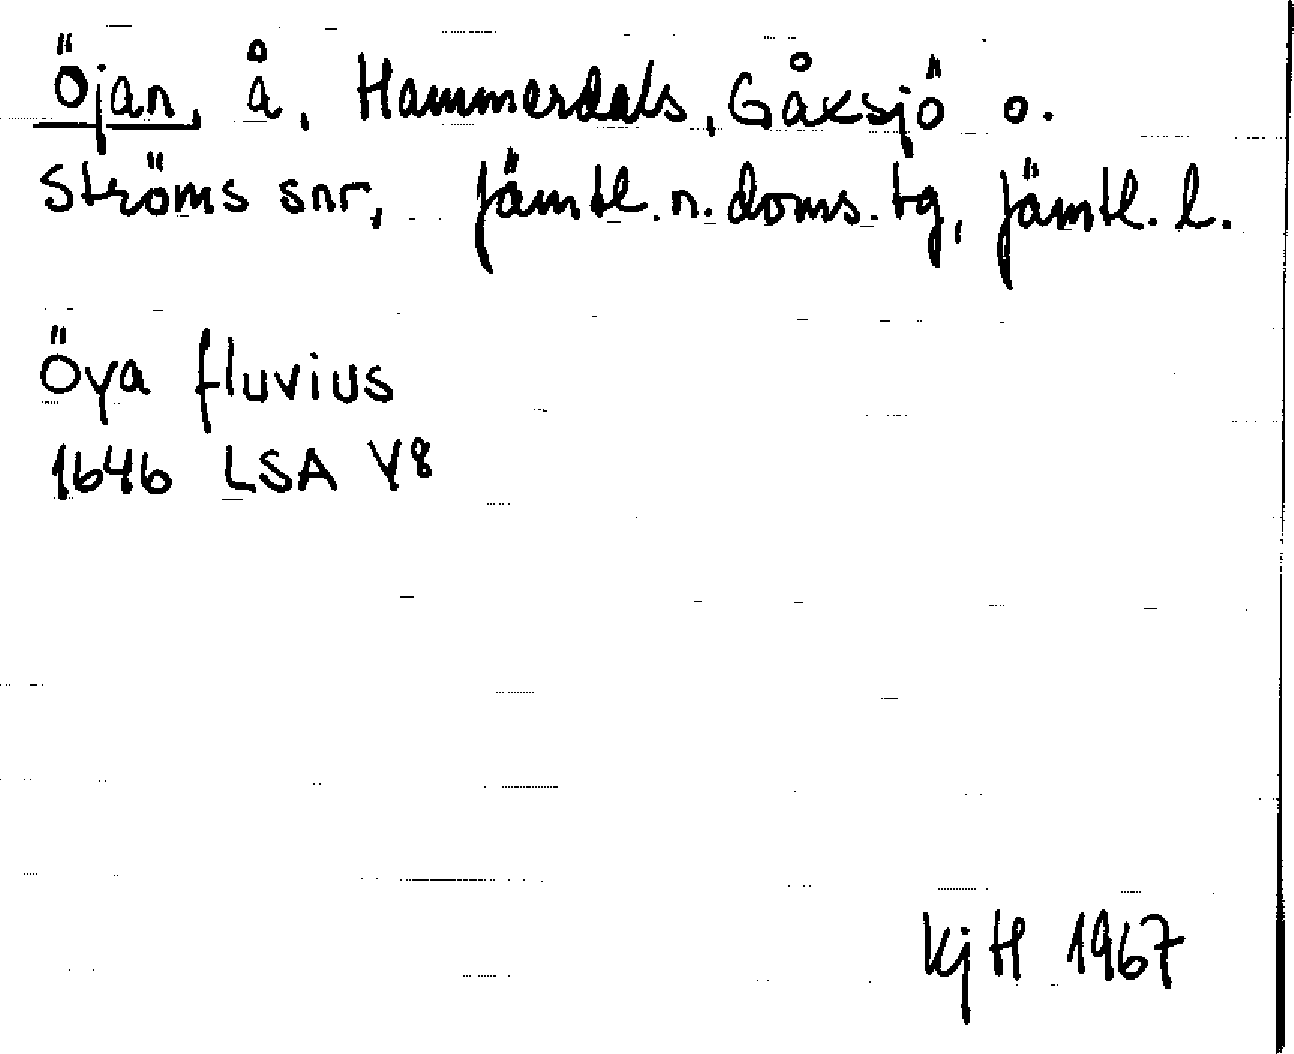 Öjan, å, Hammerdals, Gåxsjö o.
Ströms snr, Jämtl. n. doms. tg, Jämtl. l.
Öya fluvius
1646 LSA Y8
KjH 1967